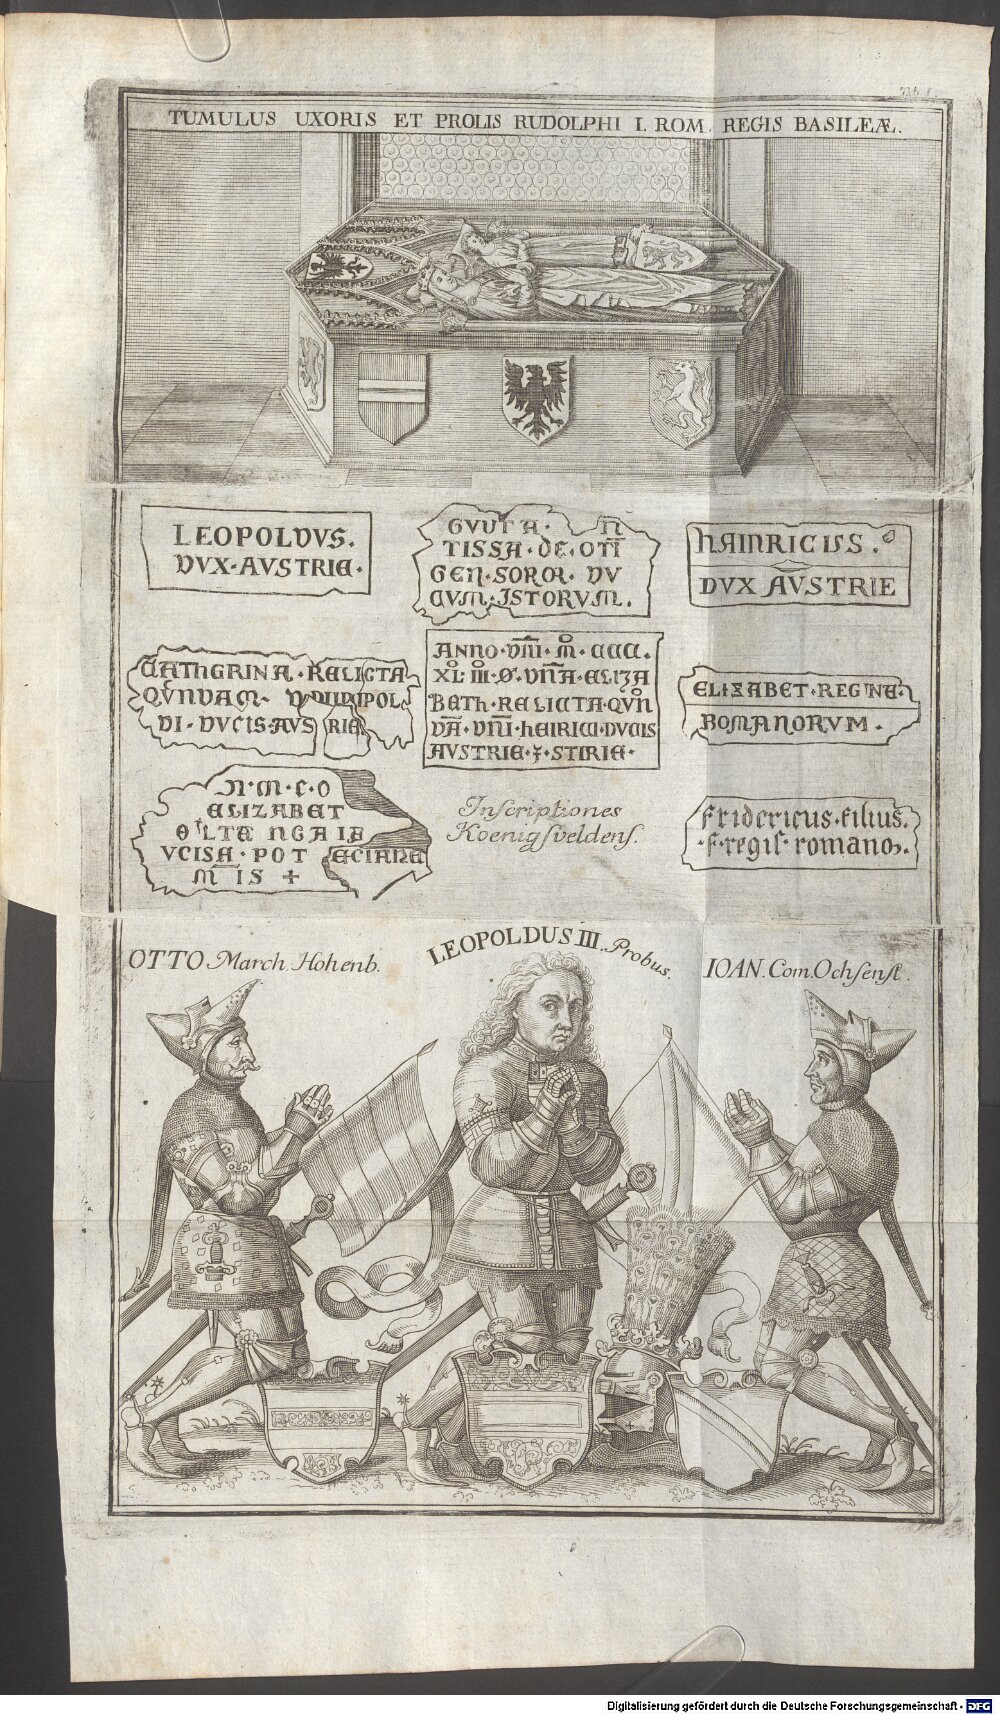 Tab. I.
TUMULUS UXORIS ET PROLIS RUDOLPHI I. ROM. REGIS BASILEÆ.
LEOPOLDVS.
DVX·AVSTRIE·
GVUTA·
TISSA·DE·OTI
GEN·SOROR·DV
CVM·ISTORVM.
HAINRICUS.
DUX AUSTRIE
CATHERINA·RELICTA
QVNDAM·
DI·DVCIS·AVS RIE
ANNO·DNI·M·CCC.
XL·III·O·DNA·ELIZA
BETH·RELICTA·QVN
DA·DNI·HEIRICI·DVCIS
AVSTRIE·Z·STIRIE·
ELIZABET·REGINE·
ROMANORVM·
N·M·C·O
ELIZABET
O LTE NGA IB
VCISA·POT ECIANE
M IS +
Inscriptiones
Koenigsveldens.
Fridericus·filius.
·F·regis·romanoꝝ.
OTTO March. Hohenb.
LEOPOLDUS III. Probus.
IOAN. Com. Ochsenst.
Digitalisierung gefördert durch die Deutsche Forschungsgemeinschaft - DFG